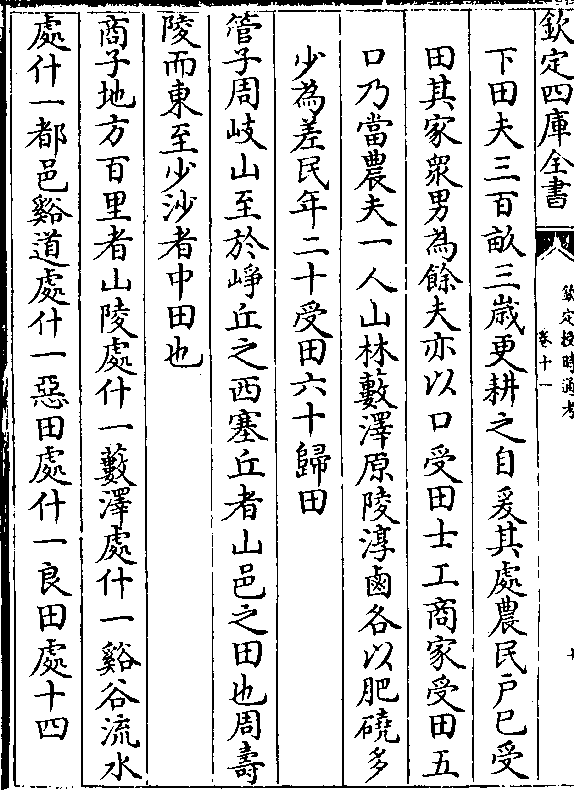 欽定四庫全書
欽定授時通考
卷十一
十
下田夫三百畝三嵗更耕之自爰其處農民户已受
田其家衆男為餘夫亦以口受田士工商家受田五
口乃當農夫一人山林藪澤原陵淳鹵各以肥磽多
少為差民年二十受田六十歸田
管子周岐山至於崢丘之西塞丘者山邑之田也周壽
陵而東至少沙者中田也
商子地方百里者山陵處什一藪澤處什一谿谷流水
處什一都邑谿道處什一惡田處什一良田處十四